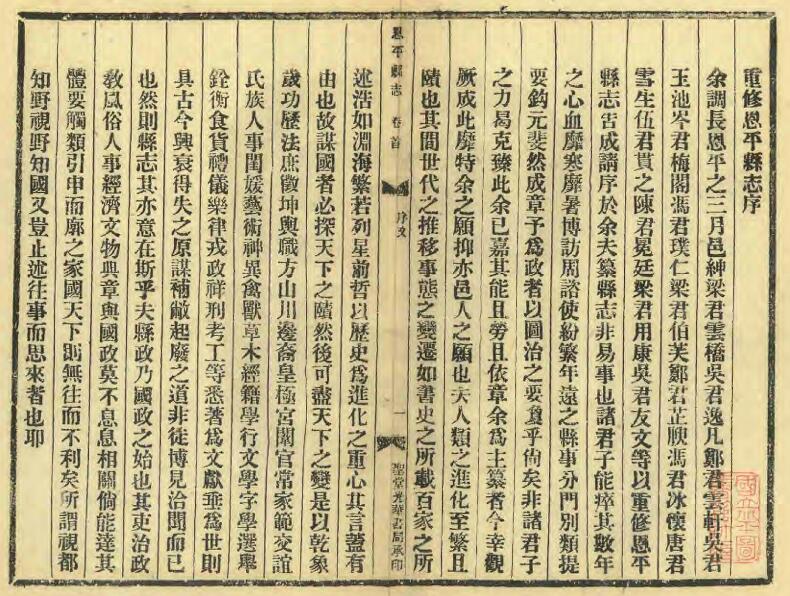 重修恩平縣志序
余調長恩平之三月邑紳梁君雲橋吳君逸凡鄭君雲軒吳君
玉池岑君梅閣馮君璞仁梁君伯芙鄭君芷顺馮君冰懷唐君
雪生伍君貫之陳君冕廷梁君用康吳君友文等以重修恩平
縣志告成請序於余夫纂縣志非易事也諸君子能瘁其數年
之心血靡寒靡暑博訪周諮使紛繁年遠之縣事分門別類提
要鈎元斐然成章予爲政者以圖治之要敻乎尙矣非諸君子
之力易克臻此余已嘉其能且勞且依章余爲主纂者今幸觀
厥成此靡特余之願抑亦邑人之願也夫人類之進化至繁且
賾也其間世代之推移事態之變遷如書史之所載百家之所
恩平縣志 卷首 序文 一 聖堂光華書局承印
述浩如淵海繁若列星前哲以歷史爲進化之重心其言蓋有
由也故謀國者必探天下之賾然後可盡天下之變是以乾象
歲功歷法庶徵坤輿職方山川邊裔皇極宮闈官常家範交誼
氏族人事閨媛藝術神異禽獸草木經籍學行文學字學選舉
銓衡食貨禮儀樂律戎政祥刑考工等悉著爲文獻垂爲世則
具古今興衰得失之原謀補敝起廢之道非徒博見洽聞而已
也然則縣志其亦意在斯乎夫縣政乃國政之始也其吏治政
敎風俗人事經濟文物典章與國政莫不息息相關倘能達其
體要觸類引申而廓之家國天下則無往而不利矣所謂視都
知野視野知國又豈止述往事而思來者也耶